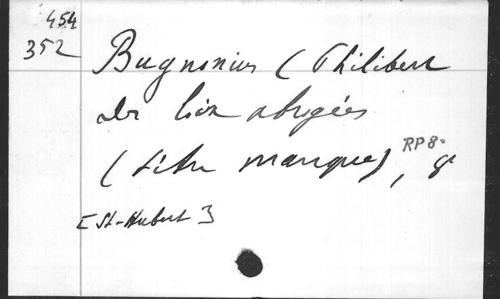 454
352
Bugnonius (Philibert
des loix abrogées
(titre manque), 8°
RP 8°
[St-Hubert]